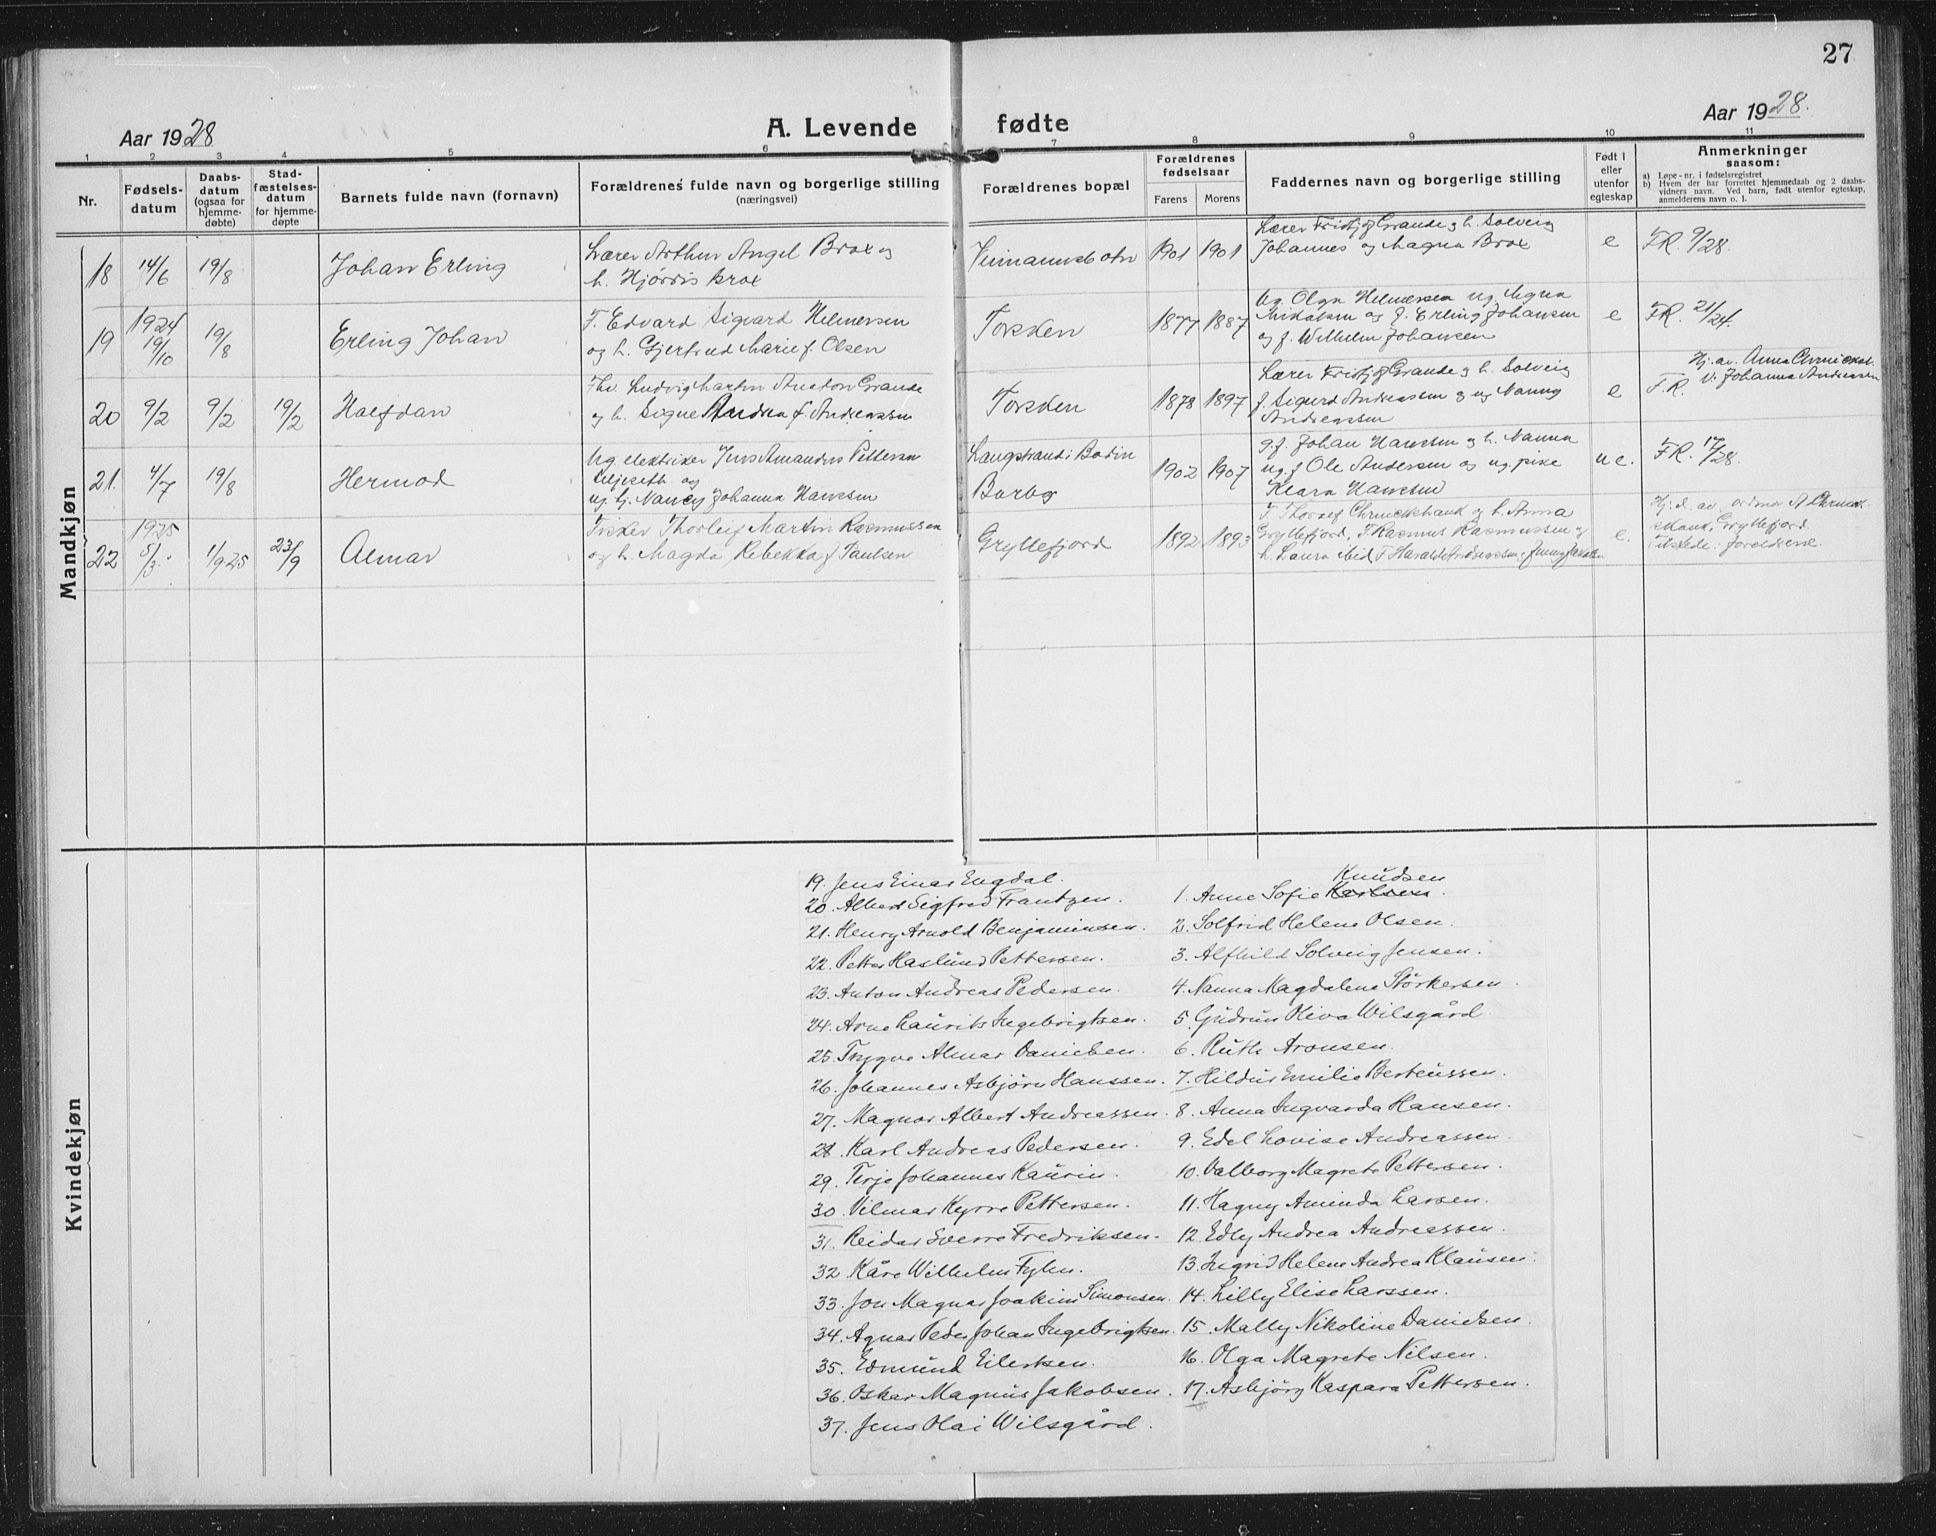 27
Aar 1928
A. Levende fødte
Aar 1928.
1 2 3 4 5 6 7 8 9 10 11
Nr.
Fødsels-
datum
Daabs-
datum
(ogsaa for
hjemme-
døbte)
Stad-
fæstelses-
datum
for hjemme-
døpte
Barnets fulde navn (fornavn)
Forældrenes fulde navn og borgerlige stilling
(næringsvei)
Forældrenes bopæl
Forældrenes
fødselsaar
Farens Morens
Faddernes navn og borgerlige stilling
Født i
eller
utenfor
egteskap
Anmerkninger
saasom:
a) Løpe-nr. i fødselsregistret
b) Hvem der har forrettet hjemmedaab og 2 daabs-
vidners navn. Ved barn, født utenfor egteskap,
anmelderens navn o. l.
Mandkjøn
18 14/6 19/8 Johan Erling
Lærer Arthur Angel Brox og
h. Hjørdis Brox
1901 1901
Lærer Fridtjof Grande og h. Solveig
Johannes og Magna Brox
e
FR. 9/28.
19 1924
19/10 19/8 Erling Johan
F. Edvard Sigvard Helmersen
og h. Gjertrud Marie f. Olsen
Torsken 1877 1887
Ug. Olga Helmersen ug. Agna
og f. Erling Johansen
og f. Wilhelm Johansen
e
FR. 21/24.
20 9/2 9/2 19/2 Halfdan
Ludvig Martin Anton Grande
og h. Signe Andrea f. Andreassen
Torsken 1878 1897
Lærer Fridtjof Grande og h. Solveig
f. Sigurd Andreassen og ug Nanny
Andreassen
e
Hj. av. Anna
v. Johanna Andreassen
F.R.
21. 4/7 19/8 Hermod
Ug elektriker Jens Amandus Pettersen
og
ug. tj. Nancy Johanna Hansen
Langstrand i Bodin
Borby
1902 1907
gf. Johan Hansen og h. Nanna
ug. f Ole Andersen og ug. pike
Klara Hansen
u e.
FR. 17/28.
22 1925
5/3 1/9 25 23/9 Almar
Fisker Thorleif Martin Rasmussen
og h. Magda Rebekka f Paulsen
Gryllefjord 1892 1893
F. Thorleif Chruickshank og h. Anna
Gryllefjord, F. Rasmus Rasmussen og
h. Laura ibid, F Harald Andreassen, Jenny
e.
Hj.d. av. ordfører A Chruick-
shank, Gryllefjord.
Tilstede: foreldrene.
Kvindekjøn
19. Jens Einar Engdal.
20. Albert Sigfred Frantzen.
21. Henry Arnold Benjaminsen.
22. Petter Haslund Pettersen.
23. Anton Andreas Pedersen.
24. Arne Laurits Ingebrigtsen.
25. Trygve Almar Danielsen.
26. Johannes Asbjörn Hanssen.
27. Magnar Albert Andreassen.
28. Karl Andreas Pedersen.
29. Terje Johannes Kaurin.
30. Vilmar Kyrre Pettersen.
31. Reidar Sverre Fredriksen.
32 Kåre Wilhelm Fylen.
33. Jon Magnar Joakim Simonsen.
34. Agnar Peder Johan Ingebrigtsen.
35. Edmund Eilertsen.
36. Oskar Magnus Jakobsen.
37. Jens Olai Wilsgård.
Knudsen
1. Anne Sofie Karlsen.
2. Solfrid Helene Olsen.
3. Alfhild Solveig Jensen.
4. Nanna Magdalene Störkersen.
5. Gudrun Oliva Wilsgård.
6. Ruth Aronsen.
7. Hildur Emilie Berteussen.
8. Anna Ingvarda Hansen.
9. Edel Lovise Andreassen.
10. Valborg Magrete Pettersen.
11. Hagny Aminda Larsen.
12. Edly Andrea Andreassen.
13. Ingrid Helene Andrea Klausen.
14. Lilly Elise Larssen.
15. Mally Nikoline Danielsen.
16. Olga Magrete Nilsen.
17. Asbjörg Kaspara Pettersen.